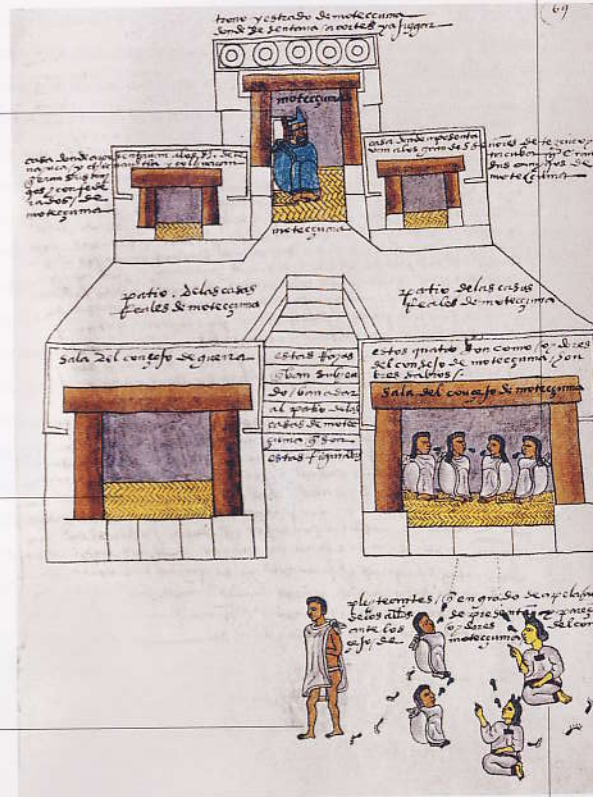 69
trono y estrado de motecçuma
donde se sentava a cortes y a juzgar
motecçuma
casa donde aposentavan a los
y colhuacan
gos / y confede
rados / de
motecçuma
casa donde aposenta
van a los grandes señores de tezcuco y
tacuba
motecçuma
motecçuma
patio . de las casas
Reales de motecçuma
patio de las casas
Reales de motecçuma
sala del conçejo de guerra
estas Rayas
van subien
do /
al patio de las
casas de motec
çuma q son
estas figuradas
estos quatro son como / oydores
del consejo de motecçuma / hon
bres sabios /
sala del conçejo de motecçuma
pleyteantes / q en grado de apelaçion
de los alldes se presentan y pareçen
ante los oydores del con
çejo / de motecçuma